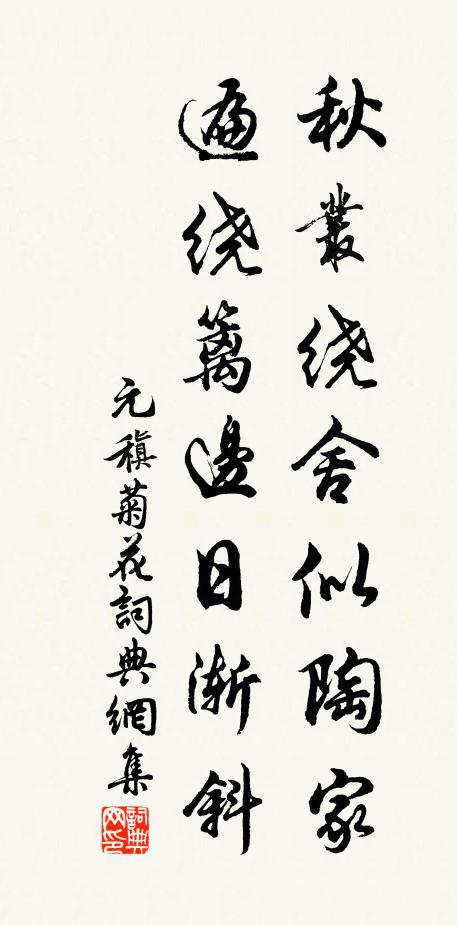 秋叢绕舍似陶家
遍绕篱邊日渐斜
元稹菊花詞典網集
詞典网印